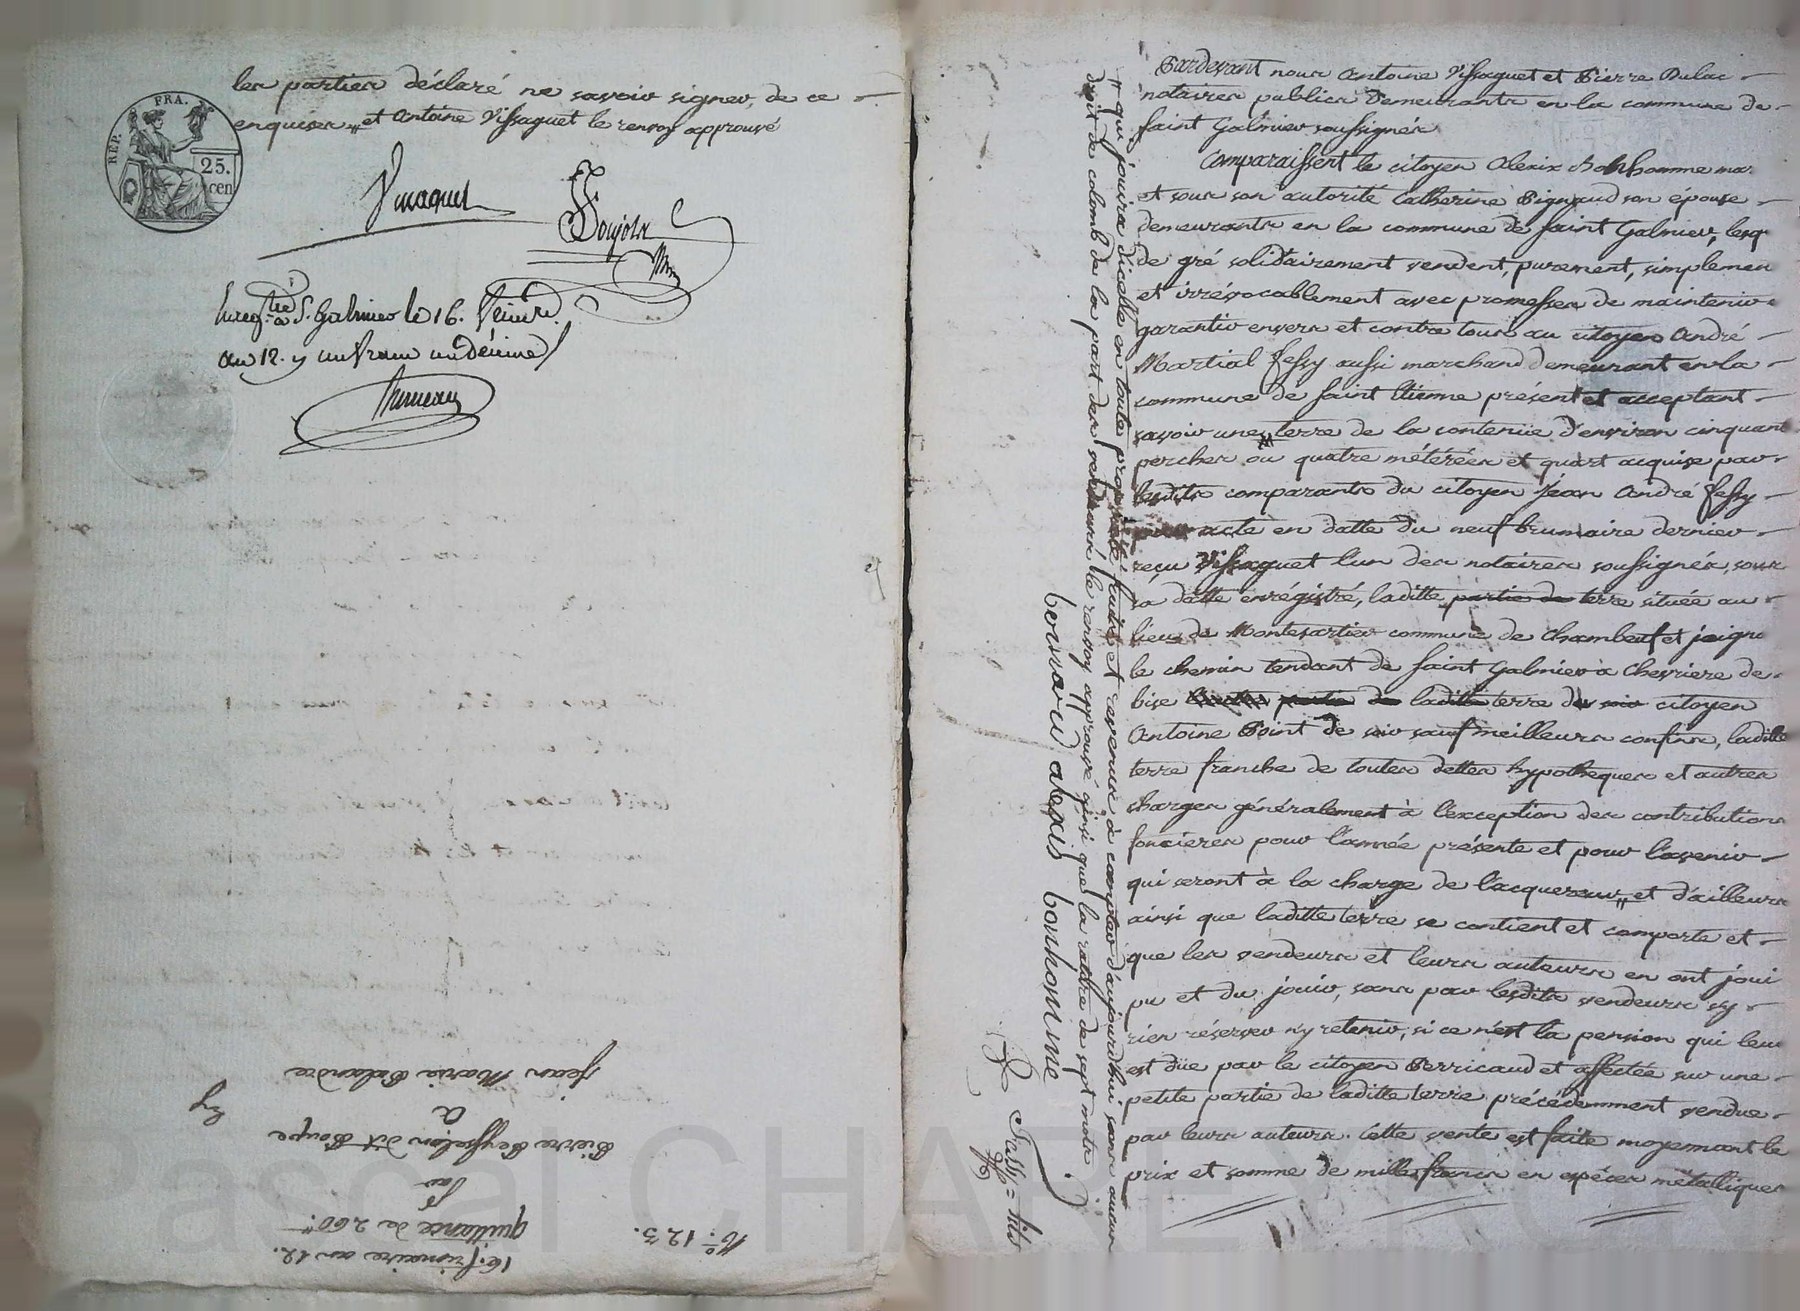 les parties déclaré ne savoir signer, de ce
enquises et Antoine Vissaguet le renvoy approuvé
REP. FRA.
25.
cen
Enregtré a St. Galmier le 16. frimre.
an 12. un franc un décime
16 frimaire an 12.
quittance de 260
par
Pierre Peysselon dit Boupe
a
Jean Marie Balandre
Pardevant nous Antoine Vissaguet et Pierre Dulac
notaires publics demeurants en la commune de
saint Galmier soussignés
Comparaissent le citoyen Alexix Bonhomme mar
et sous son autorité Catherine Pignaud son épouse
demeurants en la commune de saint Galmier, lesq
de gré solidairement vendent, purement, simplemen
et irrévocablement avec promesses de maintenir
garantir envers et contre tous au citoyen André
Martial Jessy aussi marchand demeurant en la
commune de saint Etienne présent et acceptant
savoir une terre de la contenüe d'environ cinquant
perches ou quatre métérées et quart acquise par
lesdits comparants du citoyen Jean André Jessy
acte en datte du neuf brumaire dernier
reçu Vissaguet l'un des notaires soussignés, sous
sa datte enrégistré, laditte partie de terre située au
lieu de Montesartier commune de Chambeuf et joigna
le chemin tendant de saint Galmier à Chevriere de
bise partie de laditte terre du citoyen
Antoine Point de soir sauf meilleurs confins, laditte
terre franche de touttes dettes hypotheques et autres
charges généralement à l'exception des contributions
foncieres pour l'année présente et pour l'avenir
qui seront à la charge de l'acquereur, et d'ailleurs
ainsi que laditte terre se contient et comporte et
que les vendeurs et leurs auteurs en ont joui
pu et du jouir, sans par lesdits vendeurs sy
rien réserver n'y retenir, si ce n'est la pension qui leur
est düe par le citoyen Perricaud et affectée sur une
petite partie de laditte terre précédemment vendue
par leurs auteurs. Cette vente est faite moyennant le
prix et somme de mille francs en espéces métalliques
qui jouira d'icelle en toute propriété fruits et revenus à compter d'aujourdhui sans aucun
droit de colomb de la part des vendeurs le renvoy approuvé ainsi que la rature de sept mots
bonhomme
Pascal CHAREYRON